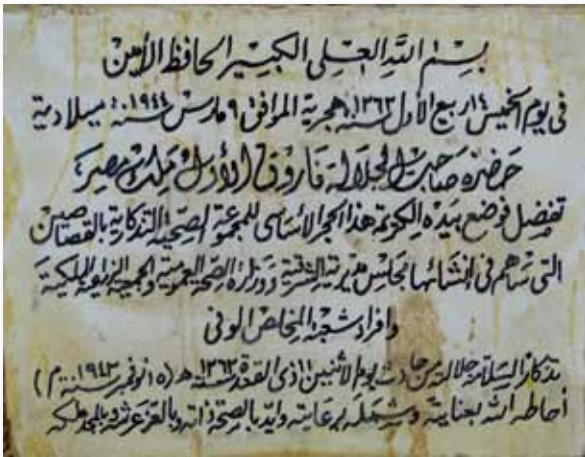 بسم الله العلي الكبير الحافظ الأمين
في يوم الخميس ١٤ ربيع الأول سنة ١٣٦٣ هجرية الموافق ٩ مارس سنة ١٩٤٤ ميلادية
حضرة صاحب الجلالة فاروق الأول ملك مصر
تفضل فوضع بيده الكريمة هذا الحجر الأساسي للمجموعة الصحية التذكارية بالقصاصين
التي ساهم في إنشائها مجلس مديرية الشرقية ووزارة الصحة العمومية والجمعية الزراعية الملكية
وأفراد شعبه المخلص الوفي
تذكار السلامة جلالته من حادث يوم الاثنين ١١ ذي القعدة سنة ١٣٦٢ هـ (١٥ نوفمبر سنة ١٩٤٣ م)
أحاطه الله بعنايته وشمله برعايته وأيد بالصحة ذاته وبالعز عرشه وبالمجد ملكه